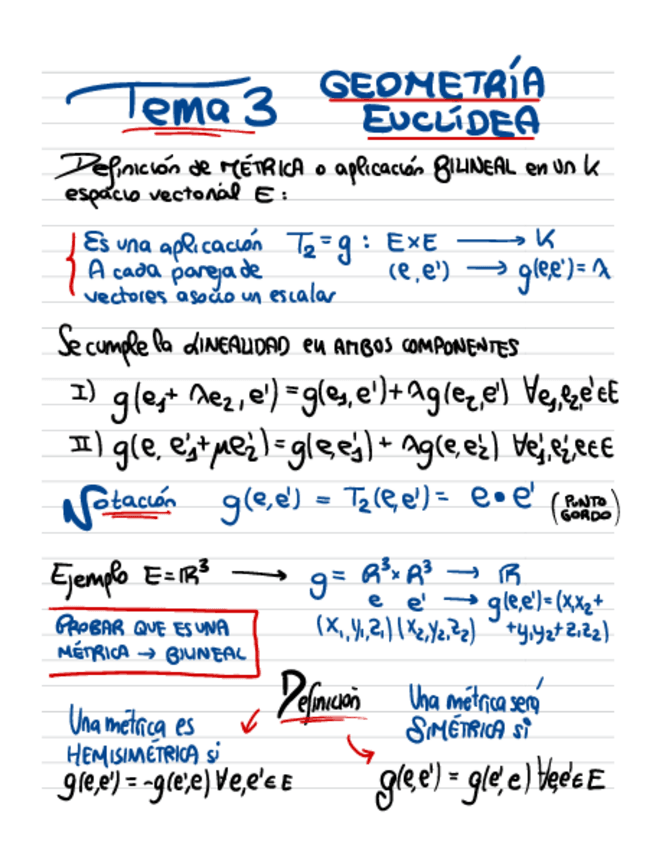 Tema 3 GEOMETRÍA
EUCLÍDEA
Definición de MÉTRICA o aplicación BILINEAL en un K
espacio vectorial E:
Es una aplicación T₂ = g : E×E ⟶ K
A cada pareja de (e, e') ⟶ g(e,e') = λ
vectores asocio un escalar
Se cumple la LINEALIDAD en AMBOS COMPONENTES
I) g(e₁ + λe₂, e') = g(e₁, e') + λg(e₂, e') ∀e₁,e₂,e'∈E
II) g(e, e'₁ + μe'₂) = g(e,e'₁) + λg(e,e'₂) ∀e'₁,e'₂,e∈E
Notación g(e,e') = T₂(e,e') = e • e' (PUNTO
GORDO)
Ejemplo E = ℝ³ ⟶ g = ℝ³×ℝ³ ⟶ ℝ
e e' ⟶ g(e,e') = (x₁x₂ +
(x₁,y₁,z₁) (x₂,y₂,z₂) + y₁y₂ + z₁z₂)
PROBAR QUE ES UNA
MÉTRICA → BILINEAL
Definición
Una métrica es
HEMISIMÉTRICA si
g(e,e') = -g(e',e) ∀e,e'∈E
Una métrica será
SIMÉTRICA si
g(e,e') = g(e',e) ∀e,e'∈E